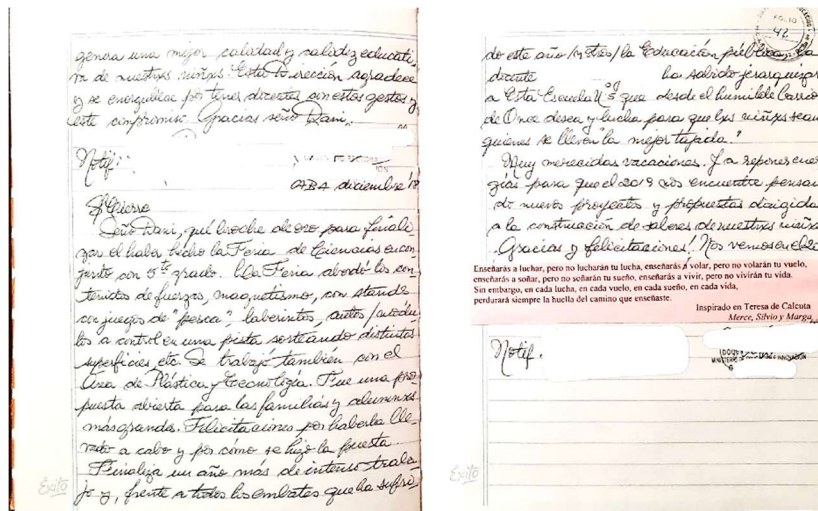 genera una mejor calidad y calidez educati-
va de nuestrxs niñxs. Esta Dirección agradece
y se enorgullece por tener docentes con estos gestos y
este compromiso. Gracias seño Dani.
Notif:
CABA diciembre 18
Cierre
Seño Dani, qué broche de oro para finali-
zar el haber hecho la Feria de Ciencias en con-
junto con 5to grado. La Feria abordó los con-
tenidos de fuerzas, magnetismo, con stands
con juegos de "pesca", laberintos, autos
a control en una pista sorteando distintas
superficies, etc. Se trabajó también con el
área de Plástica y Tecnología. Fue una pro-
puesta abierta para las familias y alumnxs
más grandes. Felicitaciones por haberla lle-
vado a cabo y por cómo se hizo la puesta.
Finaliza un año más de intenso traba-
jo y, frente a todos los embates que ha sufri-
Éxito
FOLIO
42
do este año la Educación pública, la
docente ha sabido jerarquizar
a esta Escuela Nº 5 que desde el humilde barrio
de Once desea y lucha para que lxs niñxs sean
quienes se lleven "la mejor tajada".
Muy merecidas vacaciones. Y a reponer ener-
gías para que el 2019 nos encuentre pensan-
do nuevos proyectos y propuestas dirigida
a la construcción de saberes de nuestrxs niñxs
Gracias y felicitaciones! Nos vemos en el 20
Enseñarás a luchar, pero no lucharán tu lucha, enseñarás a volar, pero no volarán tu vuelo,
enseñarás a soñar, pero no soñarán tu sueño, enseñarás a vivir, pero no vivirán tu vida.
Sin embargo, en cada lucha, en cada vuelo, en cada sueño, en cada vida,
perdurará siempre la huella del camino que enseñaste.
Inspirado en Teresa de Calcuta
Merce, Silvio y Marga
Notif.
Éxito